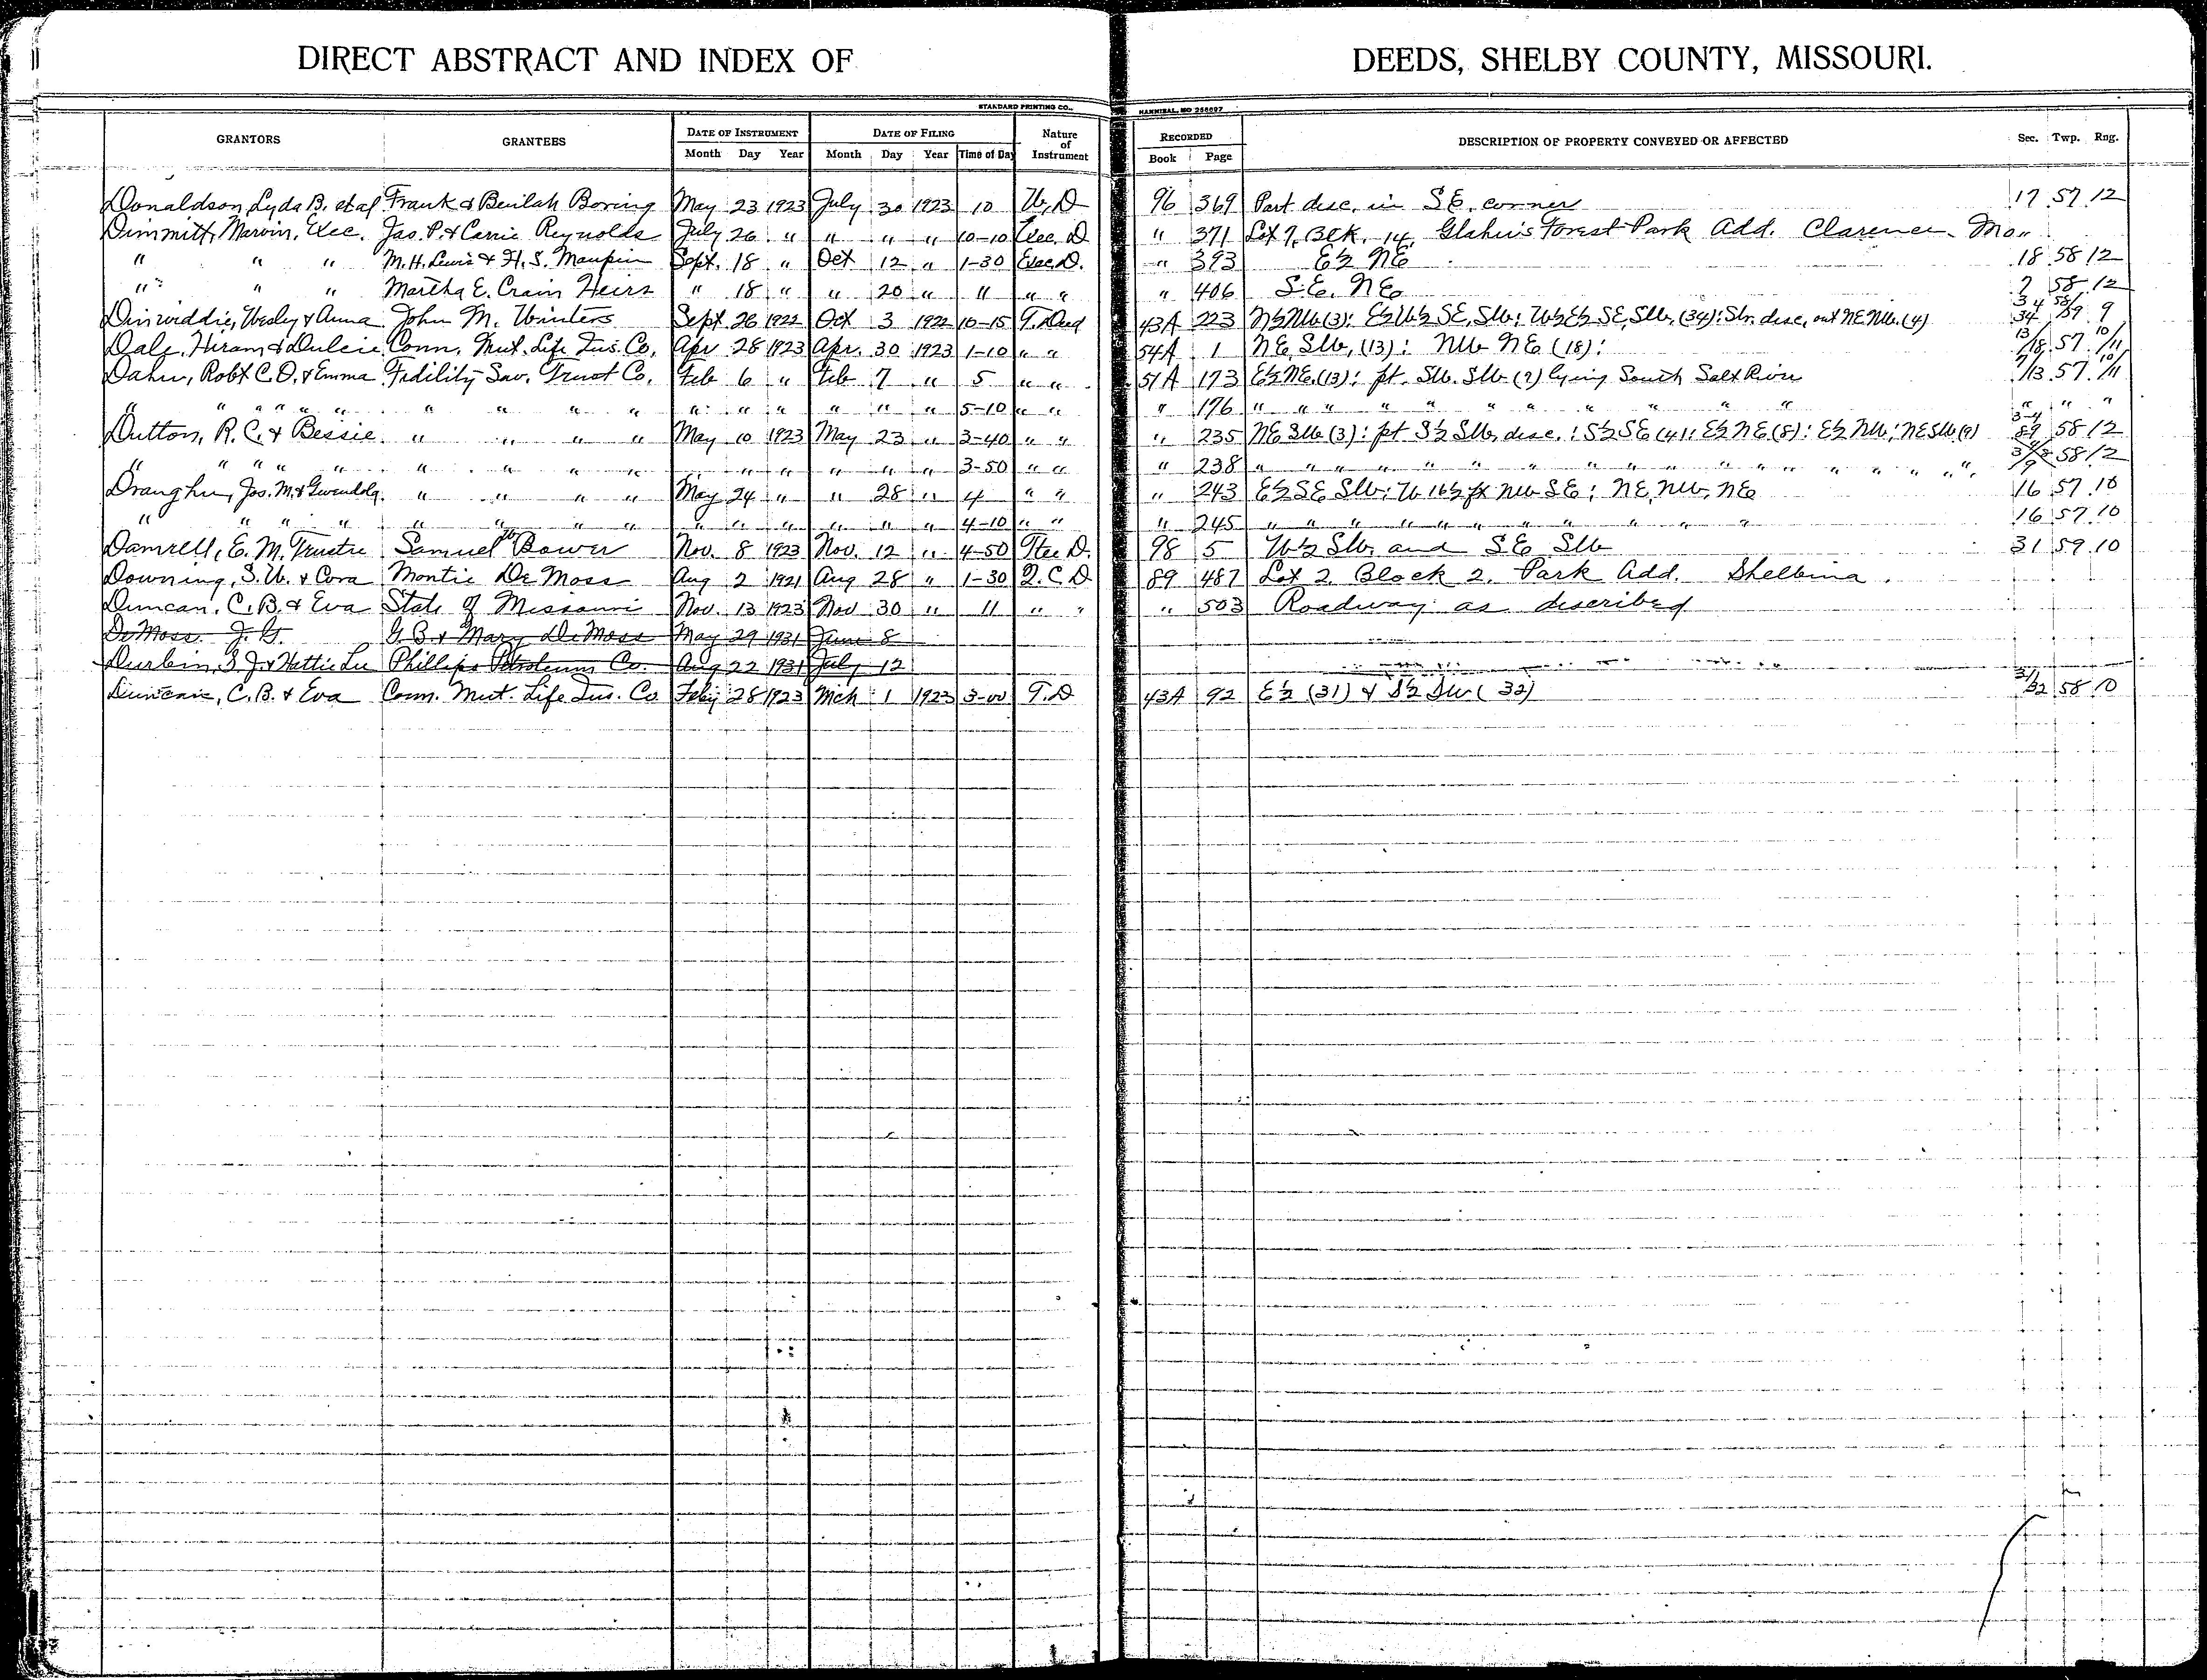 DIRECT ABSTRACT AND INDEX OF DEEDS, SHELBY COUNTY, MISSOURI.
STANDARD PRINTING CO., HANNIBAL, MO 258697
GRANTORS GRANTEES DATE OF INSTRUMENT DATE OF FILING Nature of Instrument RECORDED DESCRIPTION OF PROPERTY CONVEYED OR AFFECTED Sec. Twp. Rng.
Month Day Year Month Day Year Time of Day Book Page
Donaldson, Lyda B. et al Frank & Beulah Boring May 23 1923 July 30 1923 10 W.D 96 369 Part desc. in S.E. corner 17 57 12
Dimmitt, Marvin, Exec. Jas. P. & Carrie Reynolds July 26 " " " " 10-10 Exec. D " 371 Lot 7, Blk. 14, Glahn's Forest Park Add. Clarence Mo.
" " " M.H. Lewis & H.S. Maupin Sept. 18 " Oct 12 " 1-30 Exec. D. " 393 E½ NE 18 58 12
" " " Martha E. Crain Heirs " 18 " " 20 " 11 " " " 406 S.E. NE 7 58 12
Dinwiddie, Wesley & Anna John M. Winters Sept 26 1922 Oct 3 1922 10-15 T. Deed 43A 223 N½ NW (3): E½ W½ SE, SW: W½ E½ SE, SW, (34): Str. desc. out NE NW (4) 3 4 34 58/59 9
Dale, Hiram & Dulcie Conn. Mut. Life Ins. Co. Apr 28 1923 Apr. 30 1923 1-10 " " 54A 1 NE SW, (13): NW NE (18): 13/18 57 10/11
Dahn, Robt C.O. & Emma Fidility Sav. Trust Co. Feb 6 " Feb 7 " 5 " " 51A 173 E½ NE, (13): pt. SW. SW (7) lying South Salt River 7/13 57 10/11
" " " " " " " " " " " " " " " " 5-10 " " " 176 " " " " " " " " " " " " "
Dutton, R. C. & Bessie " " " " May 10 1923 May 23 " 3-40 " " " 235 NE SW (3): pt S½ SW, desc.: S½ SE (4): E½ NE (8): E½ NW: NE SW (9) 3-4 8 9 58 12
" " " " " " " " " " " " " " " 3-50 " " " 238 " " " " " " " " " " " " " " " 58 12
Draughn, Jos. M. & Gwendolq. " " " " May 24 " " 28 " 4 " " " 243 E½ SE SW: W 16½ ft NW SE: NE, NW, NE 16 57 10
" " " " " " " " " " " " " " 4-10 " " " 245 " " " " " " " " " " " 16 57 10
Damrell, E. M. Trustee Samuel Bower Nov. 8 1923 Nov. 12 " 4-50 Ttee D. 98 5 W½ SW, and SE SW 31 59 10
Downing, S.W. & Cora Montie De Moss Aug 2 1921 Aug 28 " 1-30 Q.C.D 89 487 Lot 2, Block 2, Park Add. Shelbina
Duncan, C.B. & Eva State of Missouri Nov. 13 1923 Nov 30 " 11 " " " 503 Roadway as described
De Moss. J. G. G. B. & Mary De Moss May 29 1931 June 8
Durbin, S J. & Hattie Lee Phillips Petroleum Co. Aug 22 1931 July 12
Duncan, C.B. & Eva Conn. Mut. Life Ins. Co Feby 28 1923 Mch 1 1923 3-00 T.D 43A 92 E½ (31) & S½ SW (32) 31/32 58 10